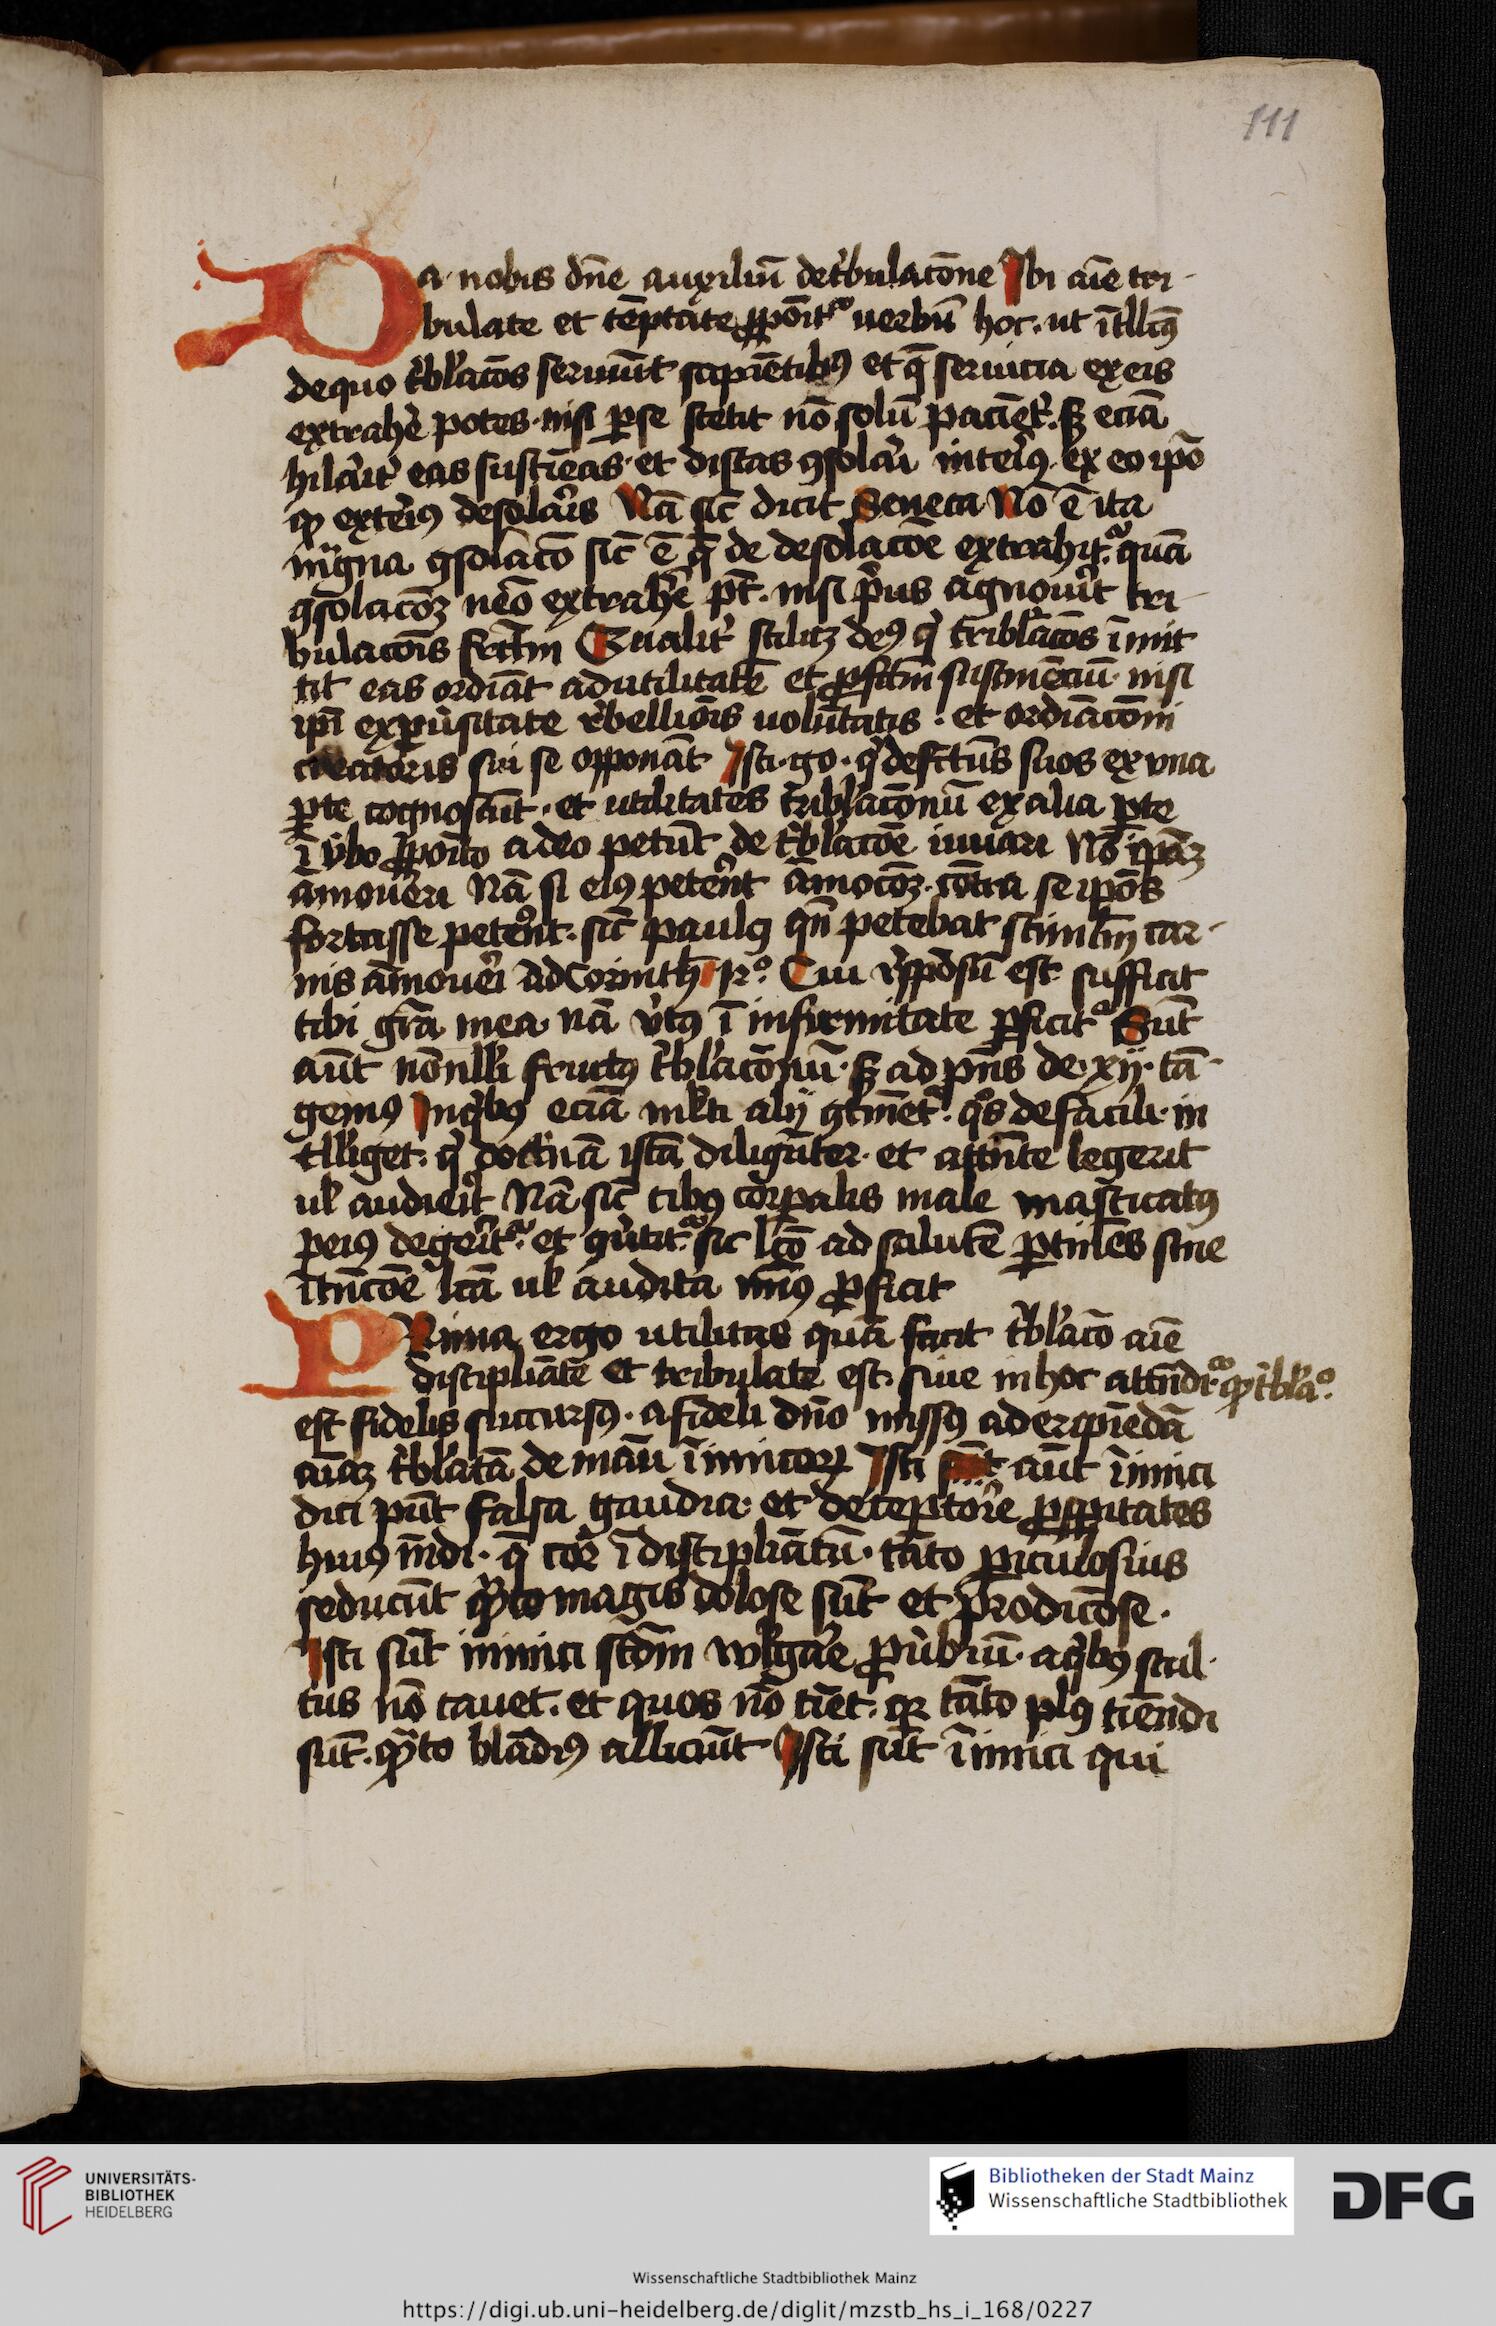 111
Da nobis dn̄e auxiliū det̉bulacōne Ibi aīe tri-
bulate et tēptate ꝓpōitᷣ uerbū hoc. ut ītllīgꝰ
dequo t̉bl̉acōs seruiūt sapiētibꝰ et q̄ seruicia exeis
extrahe᷑ potes nisi ꝑse stetit nō solū paciēt᷑. sꝫ eciā
hilarit᷑ eas sustīeas et discas ꝯsolari inte᷑iꝰ ex eo ip̄o
ꝙ exte᷑iꝰ desola᷑is Nā sic̄ dicit Seneca Nō ē ita
mᷓgna ꝯsolacō sic̄ ē q̄ de desolacōe extrahitᷣ quā
ꝯsolacōꝫ nēo extrahe᷑ pt̄. nisi p̉us agnoue᷑it tri-
bulacōis fcm̄ Qualit᷑ scilicꝫ deꝰ q̉ tribl̉acōs īmit
tit eas ordiāt adutilitatē et ꝓfcm̄ sustinēciū nisi
ip̄i exꝑu᷑sitate r̉bellīois uolūtatis et ordiācōni
creatoris sui se opponāt Isti go q̉ defctūs suos ex vna
ꝑte cognoscūt et utilitates tribl̉acōnū ex alia ꝑte
ī v̉bo ꝓpōito adeo petūt de t̉bl̉acōe iuuari Nō ip̄aꝫ
amoueri Nā si eiꝰ pete᷑nt āmocōꝫ. cōtra se ip̄os
fortasse pete᷑nt. sic̄ paulꝰ qn̄ petebat stimlm̄ car-
nis āmoueri Ad Corinth 12o Cui r̉spōsū est sufficit
tibi gr̄a mea nā v̉tꝰ ī infirmitate ꝑficitᷣ Sūt
aūt nōnll̉i fructꝰ t̉bl̉acōnū. sꝫ ad pn̄s de xij tā-
gemꝰ Inqbꝰ eciā ml̉ti alij ꝯtinētᷣ. qōs defacili in
tll̉iget. q̉ doctnā istā diligēnter et attn̄te legerit
ul̉ audie᷑it Nā sic̄ cibꝰ corꝑalis male masticatꝰ
peiꝰ degeritᷣ et ꝯu᷑titᷣ sic lcō ad salutē ꝑtines sine
ītn̄cōe lcā ul̉ audita minꝰ ꝓficit
PRima ergo utilitas quā facit t̉bl̉acō aīe
discipliāte et tribulate est. siue inhoc attn̄dr̄ᷣ ꝙ t̉bl̉ao
est fidelis succursꝰ. afideli dn̄o missꝰ aderipiēdā
aīaꝫ t̉bl̉atā de manū īimicoꝝ Isti aūt īimici
dici pn̄t falsa gaudia et deceptore᷑ ꝓspitates
huiꝰ mdi. q̄ cor īdiscipliātū. tāto ꝑiculosius
seducūt qᷓto magis dolose sūt et prodicōse.
Isti sūt inimici scd̄m vulgare᷑ ꝓu᷑biū aqbꝰ stul-
tus nō cauet. et quos nō timet. qꝛ tāto plꝰ timēdi
sūt. qᷓto blādiꝰ alliciūt Isti sūt īimici qui
UNIVERSITÄTS-
BIBLIOTHEK
HEIDELBERG
Bibliotheken der Stadt Mainz
Wissenschaftliche Stadtbibliothek
DFG
Wissenschaftliche Stadtbibliothek Mainz
https://digi.ub.uni-heidelberg.de/diglit/mzstb_hs_i_168/0227